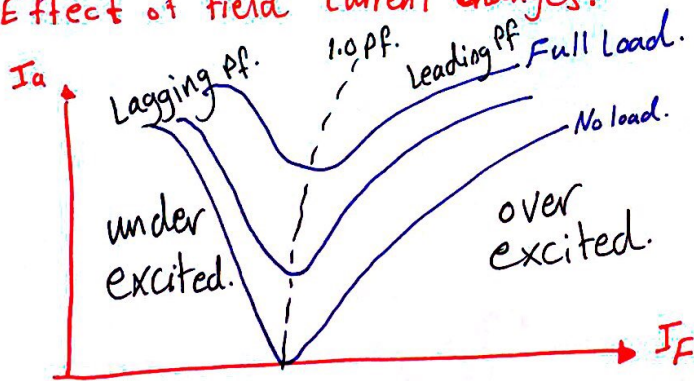 Effect of field current changes.
Ia
Lagging Pf.
1.0 Pf.
Leading Pf
Full load.
No load.
under
excited.
over
excited.
IF